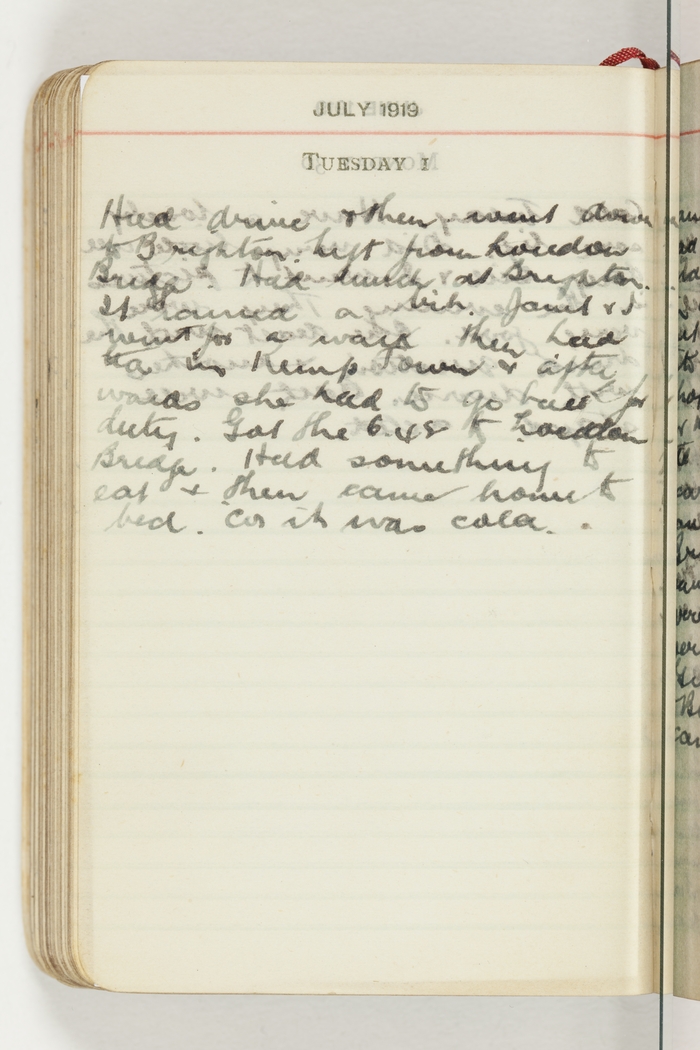 JULY 1919
TUESDAY 1
Had drive & then went down
to Brighton. Left from London
Bridge. Had lunch at Brighton.
It rained a bit. Janet & I
went for a walk then had
tea in Kemp Town & after
wards she had to go back for
duty. Got the 6.48 to London
Bridge. Had something to
eat & then came home to
bed. Cos it was cold.